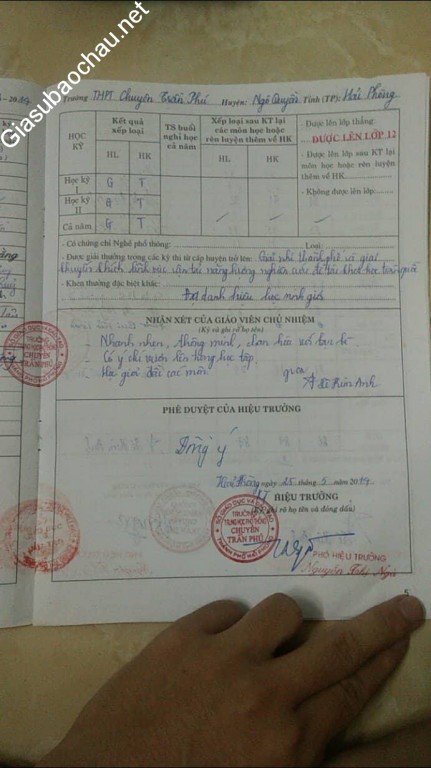 Giasubaochau.net
- 2019
Trường THPT Chuyên Trần Phú Huyện: Ngô Quyền Tỉnh (TP): Hải Phòng
HỌC KỲ
Kết quả xếp loại
TS buổi nghỉ học cả năm
Xếp loại sau KT lại các môn học hoặc rèn luyện thêm về HK
HL HK HL HK
- Được lên lớp thẳng:
ĐƯỢC LÊN LỚP 12
- Được lên lớp sau KT lại môn học hoặc rèn luyện thêm về HK
- Không được lên lớp:
Học kỳ I G T
Học kỳ II G T
Cả năm G T
- Có chứng chỉ Nghề phổ thông: Loại
- Được giải thưởng trong các kỳ thi từ cấp huyện trở lên: Giải nhì thành phố và giải
khuyến khích lĩnh vực
- Khen thưởng đặc biệt khác:
Đạt danh hiệu học sinh giỏi
NHẬN XÉT CỦA GIÁO VIÊN CHỦ NHIỆM
(Ký và ghi rõ họ tên)
- Nhanh nhẹn, thông minh, chan hòa với bạn bè.
- Có ý chí vươn lên trong học tập
- Học giỏi đều các môn.
TRƯỜNG
CHUYÊN
TRẦN PHÚ
PHÊ DUYỆT CỦA HIỆU TRƯỞNG
Đồng ý
Hải Phòng ngày 25 tháng 5 năm 2019
HIỆU TRƯỞNG
(Ký ghi rõ họ tên và đóng dấu)
SỞ GIÁO DỤC VÀ ĐÀO TẠO
TRƯỜNG
TRUNG HỌC PHỔ THÔNG
CHUYÊN
TRẦN PHÚ
THÀNH PHỐ HẢI PHÒNG
PHÓ HIỆU TRƯỞNG
Nguyễn Thị Ngà
5